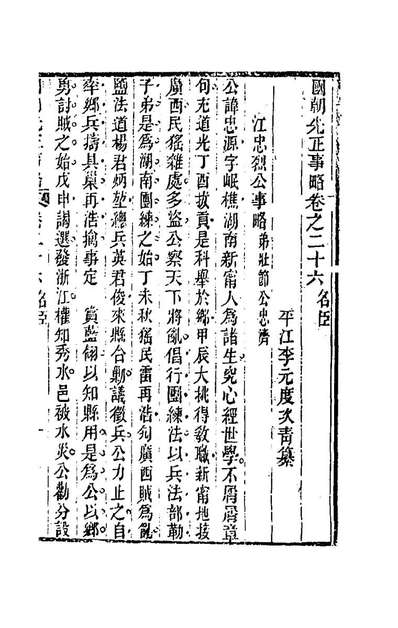 國朝先正事略卷之二十六 名臣
平江李元度次青纂
江忠烈公事略 弟壯節公忠濟
公諱忠源字岷樵湖南新甯人為諸生究心經世學不屑屑章
句充道光丁酉拔貢是科舉於鄉甲辰大挑得教職新甯地接
廣西民猺雜處多盜公察天下將亂倡行團練法以兵法部勒
子弟是為湖南團練之始丁未秋猺民雷再浩勾廣西賊為亂
鹽法道楊君炳堃總兵英君俊來縣合勦議徵兵公力止之自
率鄉兵擣其巢再浩擒事定 賞藍翎以知縣用是為公以鄉
勇討賊之始戊申謁選發浙江權知秀水邑被水災公勸分設